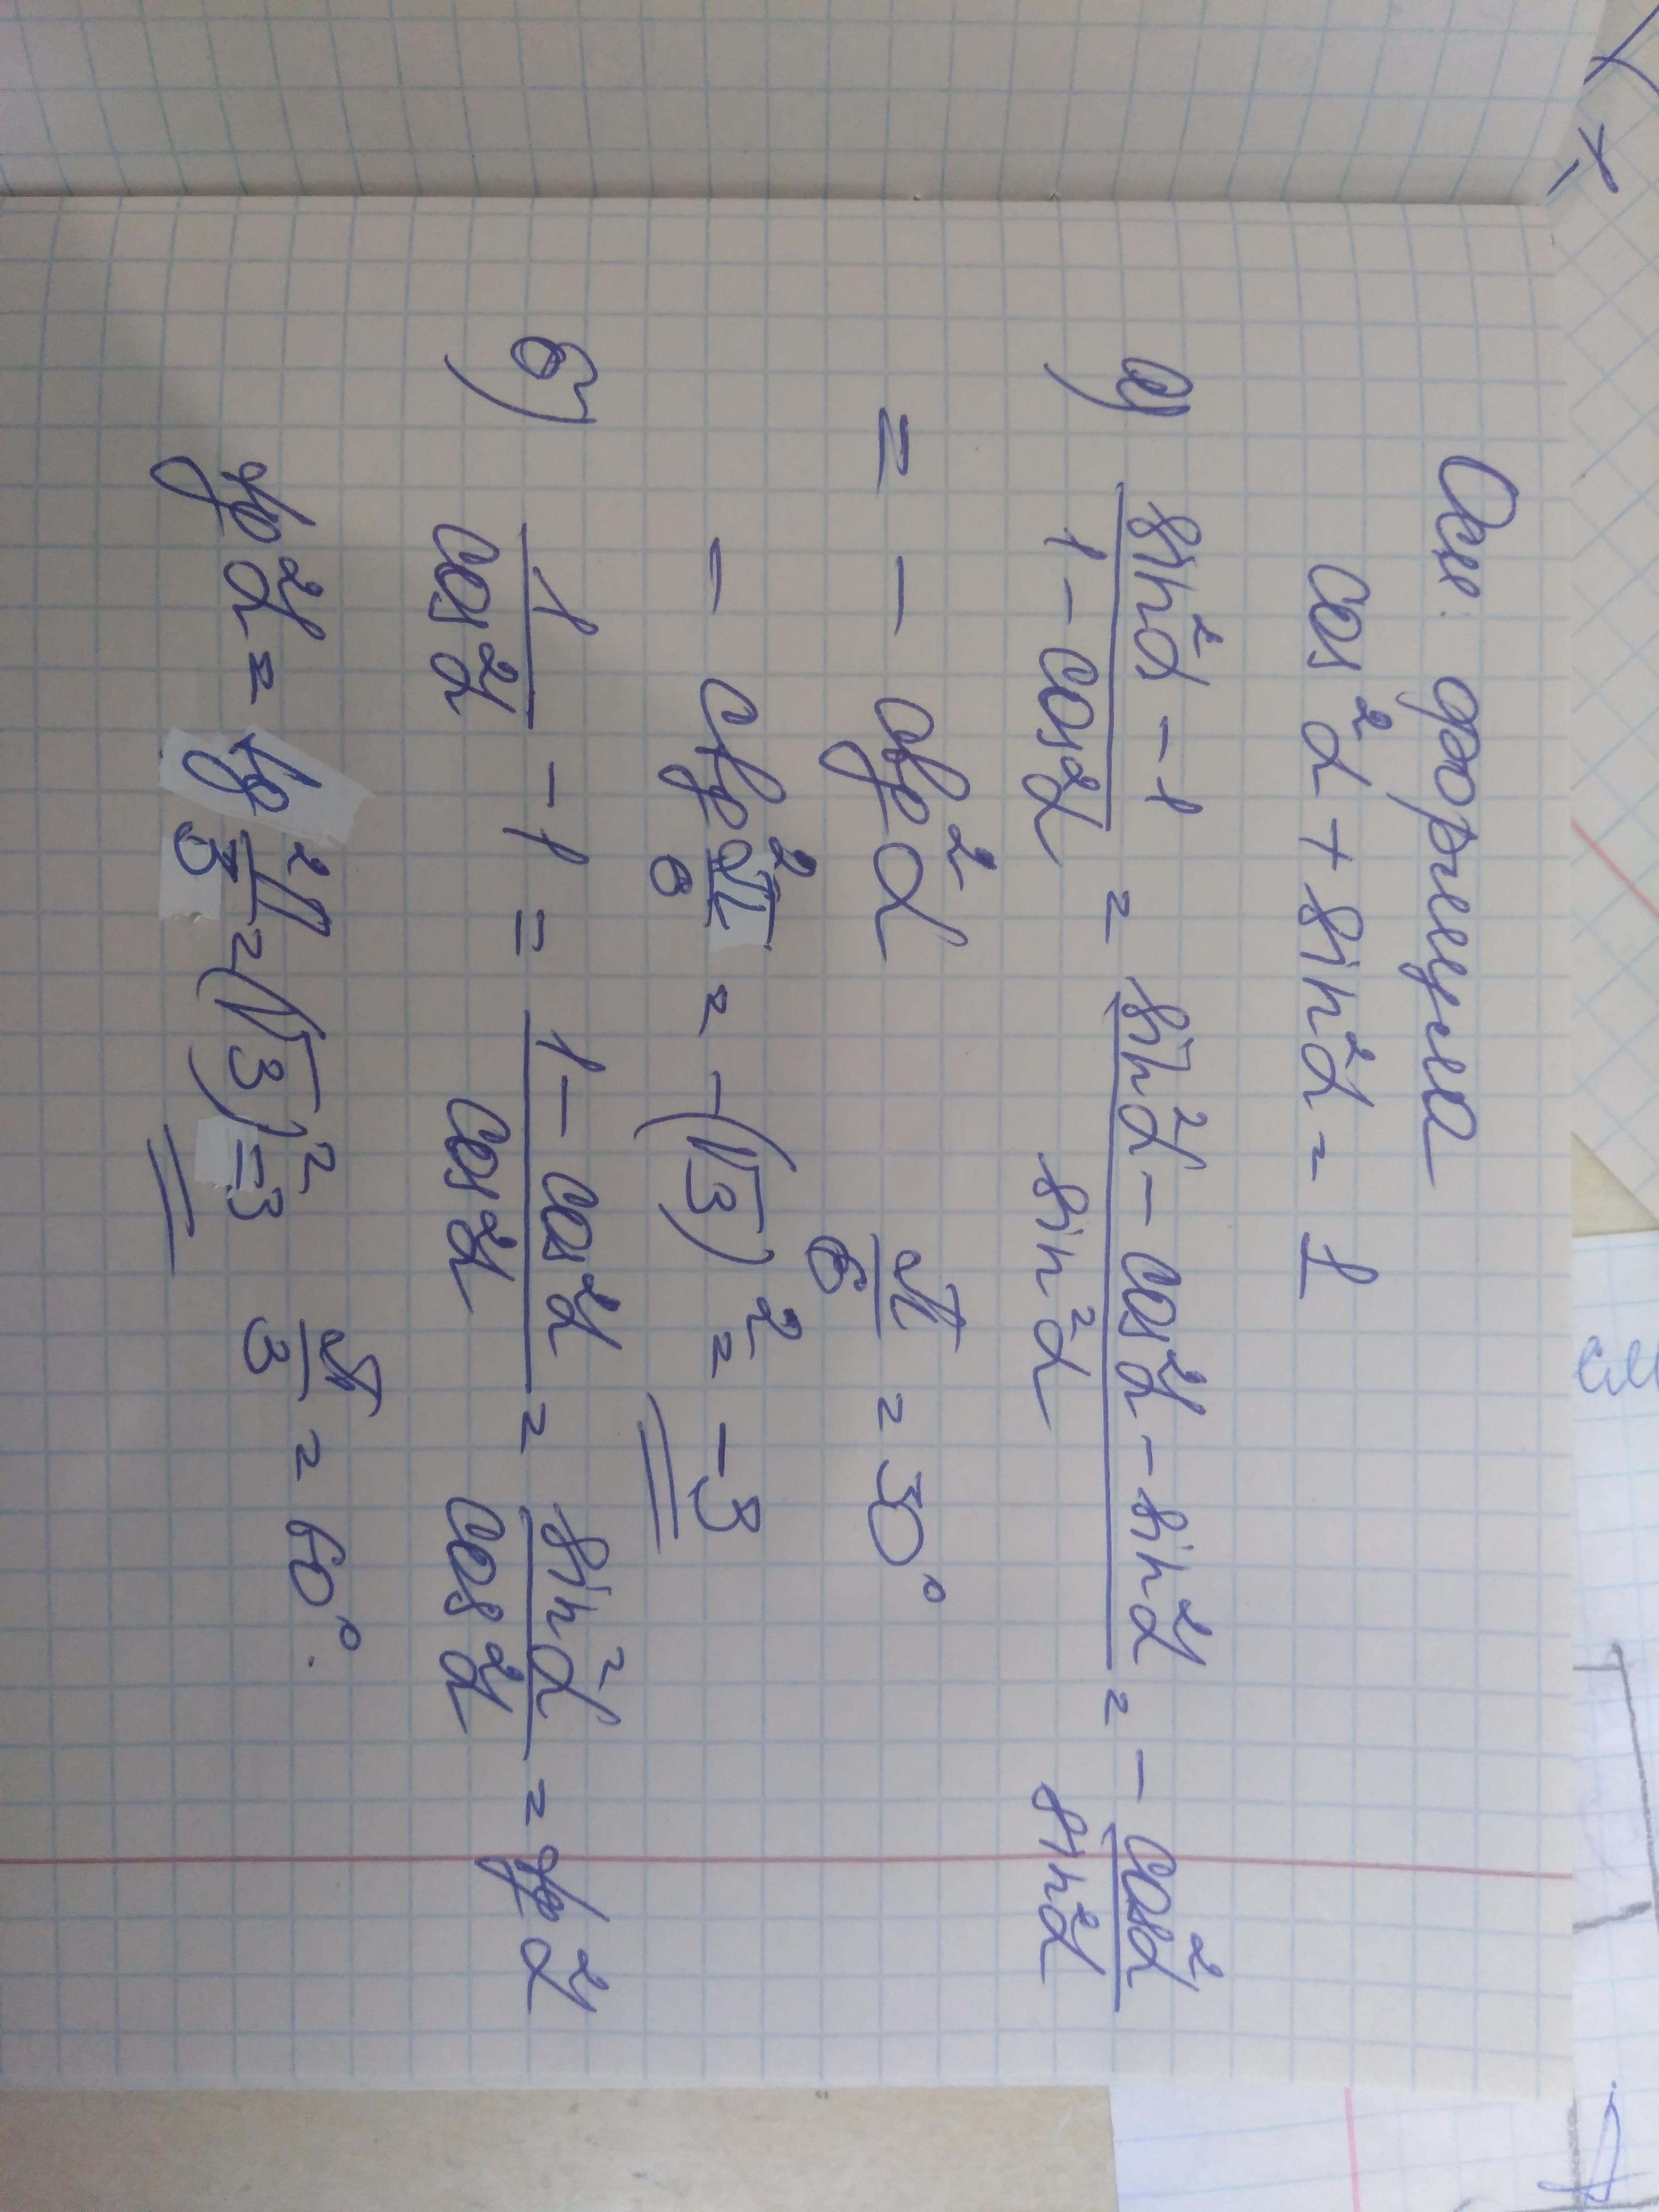 Осн. формула
cos²α + sin²α = 1
а) (sin²α - 1)/(1 - cos²α) = (sin²α - cos²α - sin²α)/(sin²α) = - cos²α/sin²α
= - ctg²α π/6 = 30°
- ctg² π/6 = -(√3)² = -3
б) 1/cos²α - 1 = (1 - cos²α)/cos²α = sin²α/cos²α = tg²α
tg²α = tg² π/3 = (√3)² = 3 π/3 = 60°.